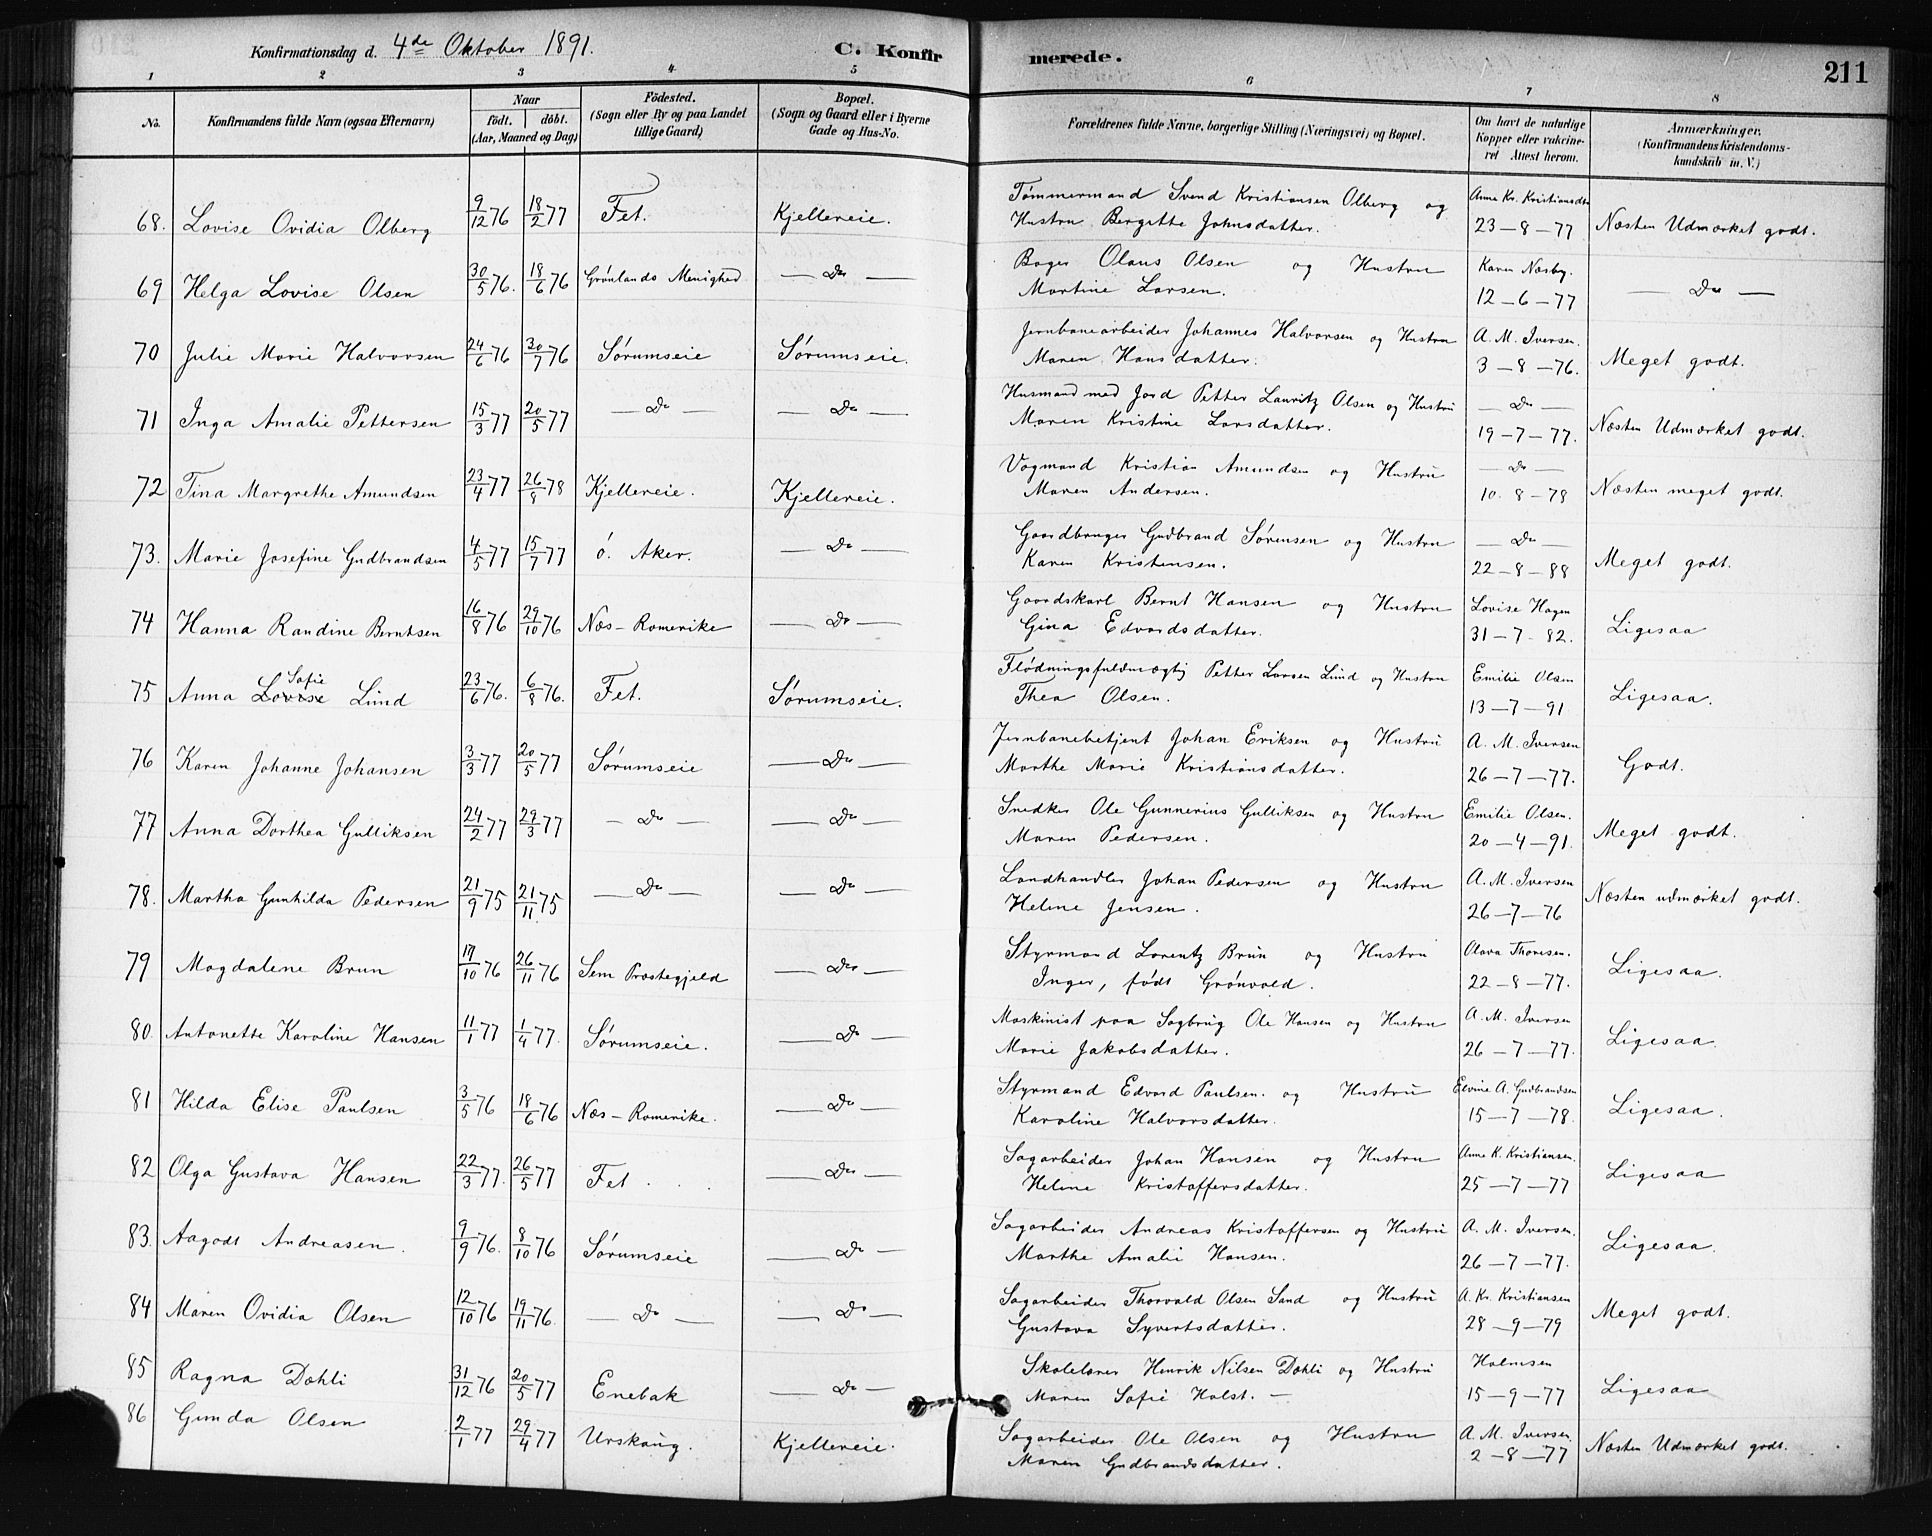 Konfirmationsdag d. 4de Oktober 1891. C. Konfirmerede. 211
1 2 3 4 5 6 7 8
No. Konfirmandens fulde Navn (ogsaa Efternavn) Naar födt. döbt. (Aar, Maaned og Dag) Födested. (Sogn eller By og paa Landet tillige Gaard) Bopæl. (Sogn og Gaard eller i Byerne Gade og Hus-No. Forældrenes fulde Navne, borgerlige Stilling (Næringsvei) og Bopæl. Om havt de naturlige Kopper eller vakcineret Attest herom. Anmærkninger. (Konfirmandens Kristendomskundskab m. V.)
68. Lovise Ovidia Olberg 9/12 76 18/2 77 Fet. Kjellereie. Tømmermand Svend Kristiansen Olberg og Hustru Bergitte Johnsdatter. Anne Kr. Kristiansdtr 23-8-77 Næsten Udmærket godt.
69 Helga Lovise Olsen 30/5 76. 18/6 76 Grønlands Menighed — Do — Bager Olaus Olsen og Hustru Martine Larsen. Karen Næsby. 12-6-77 — Do —
70 Julie Marie Halvorsen 24/6 76 30/7 76 Sørumseie Sørumseie. Jernbanearbeider Johannes Halvorsen og Hustru Maren Hansdatter. A. M. Iversen. 3-8-76. Meget godt.
71 Inga Amalie Pettersen 15/3 77 20/5 77 — Do — — Do — Husmand med Jord Petter Lauritz Olsen og Hustru Maren Kristine Larsdatter. — Do — 19-7-77. Næsten Udmærket godt.
72 Tina Margrethe Amundsen 23/4 77 26/8 78 Kjellereie. Kjellereie. Vogmand Kristian Amundsen og Hustru Maren Andersen. — Do — 10-8-78 Næsten meget godt.
73. Marie Josefine Gudbrandsen 4/5 77 15/7 77 Ø. Aker. — Do — Gaardbruger Gudbrand Sørensen og Hustru Karen Kristensen. — Do — 22-8-88 Meget godt.
74 Hanna Randine Berntsen 16/8 76 29/10 76 Næs-Romerike — Do — Gaardskarl Bernt Hansen og Hustru Gina Edvardsdatter. Lovise Hagen 31-7-82. Ligesaa
75 Anna Lovise Sofie Lund 23/6 76. 6/8 76. Fet. Sørumseie. Flødningsfuldmægtig Petter Larsen Lund og Hustru Thea Olsen. Emilie Olsen 13-7-91 Ligesaa.
76 Karen Johanne Johansen 3/3 77 20/5 77 Sørumseie — Do — Jernbanebetjent Johan Eriksen og Hustru Marthe Marie Kristiansdatter. A. M. Iversen 26-7-77. Godt.
77 Anna Dorthea Gulliksen 24/2 77 29/3 77 — Do — — Do — Snedker Ole Gunnerius Gulliksen og Hustru Maren Pedersen. Emilie Olsen. 20-4-91. Meget godt.
78. Martha Gunhilda Pedersen 21/9 75 21/11 75 — Do — — Do — Landhandler Johan Pedersen og Hustru Helene Jensen. A. M. Iversen 26-7-76 Næsten udmærket godt.
79 Magdalene Brun 17/10 76 26/11 76 Sem Præstegjeld — Do — Styrmand Lorentz Brun og Hustru Inger, født Grønvold. Olava Thoresen. 22-8-77. Ligesaa.
80. Antonette Karoline Hansen 11/1 77 1/4 77. Sørumseie. — Do — Maskinist paa Sagbrug Ole Hansen og Hustru Marie Jakobsdatter. A. M. Iversen 26-7-77. Ligesaa.
81 Hilda Elise Paulsen 3/5 76 18/6 76 Næs-Romerike. — Do — Styrmand Edvard Paulsen. og Hustru Karoline Halvorsdatter. Elvine A. Gudbrandsen 15-7-78. Ligesaa.
82 Olga Gustava Hansen 22/3 77. 26/5 77 Fet. — Do — Sagarbeider Johan Hansen og Hustru Helene Kristoffersdatter. Anne K. Kristiansen. 25-7-77 Ligesaa
83. Aagodt Andreasen. 9/9 76. 8/10 76 Sørumseie — Do — Sagarbeider Andreas Kristoffersen og Hustru Marthe Amalie Hansen. A. M. Iversen. 26-7-77. Ligesaa.
84 Maren Ovidia Olsen 12/10 76 19/11 76. — Do — — Do — Sagarbeider Thorvald Olsen Sand og Hustru Gustava Syvertsdatter. A. Kr. Kristiansen 28-9-79 Meget godt.
85 Ragna Dæhli 31/12 76 20/5 77 Enebak — Do — Skolelærer Henrik Nilsen Dæhli og Hustru Maren Sofie Holst. — Holmsen 15-9-77 Ligesaa
86 Gunda Olsen 2/1 77 29/4 77 Urskoug. Kjellereie. Sagarbeider Ole Olsen og Hustru Maren Gudbrandsdatter. A. M. Iversen. 2-8-77 Næsten Udmærket godt.